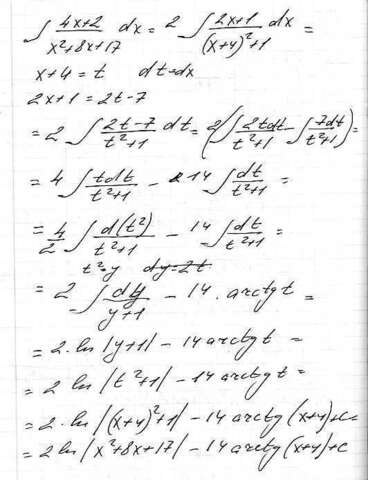 ∫ (4x+2)/(x²+8x+17) dx = 2 ∫ (2x+1)/((x+4)²+1) dx =
x+4=t dt=dx
2x+1=2t-7
= 2 ∫ (2t-7)/(t²+1) dt = 2(∫ 2tdt/(t²+1) - ∫ 7dt/(t²+1)) =
= 4 ∫ tdt/(t²+1) - 14 ∫ dt/(t²+1) =
= 4/2 ∫ d(t²)/(t²+1) - 14 ∫ dt/(t²+1) =
t²=y dy=2t
= 2 ∫ dy/(y+1) - 14 · arctg t =
= 2·ln|y+1| - 14 arctg t =
= 2 ln|t²+1| - 14 arctg t =
= 2·ln|(x+4)²+1| - 14 arctg (x+4)+c=
= 2ln|x²+8x+17| - 14 arctg (x+4)+c